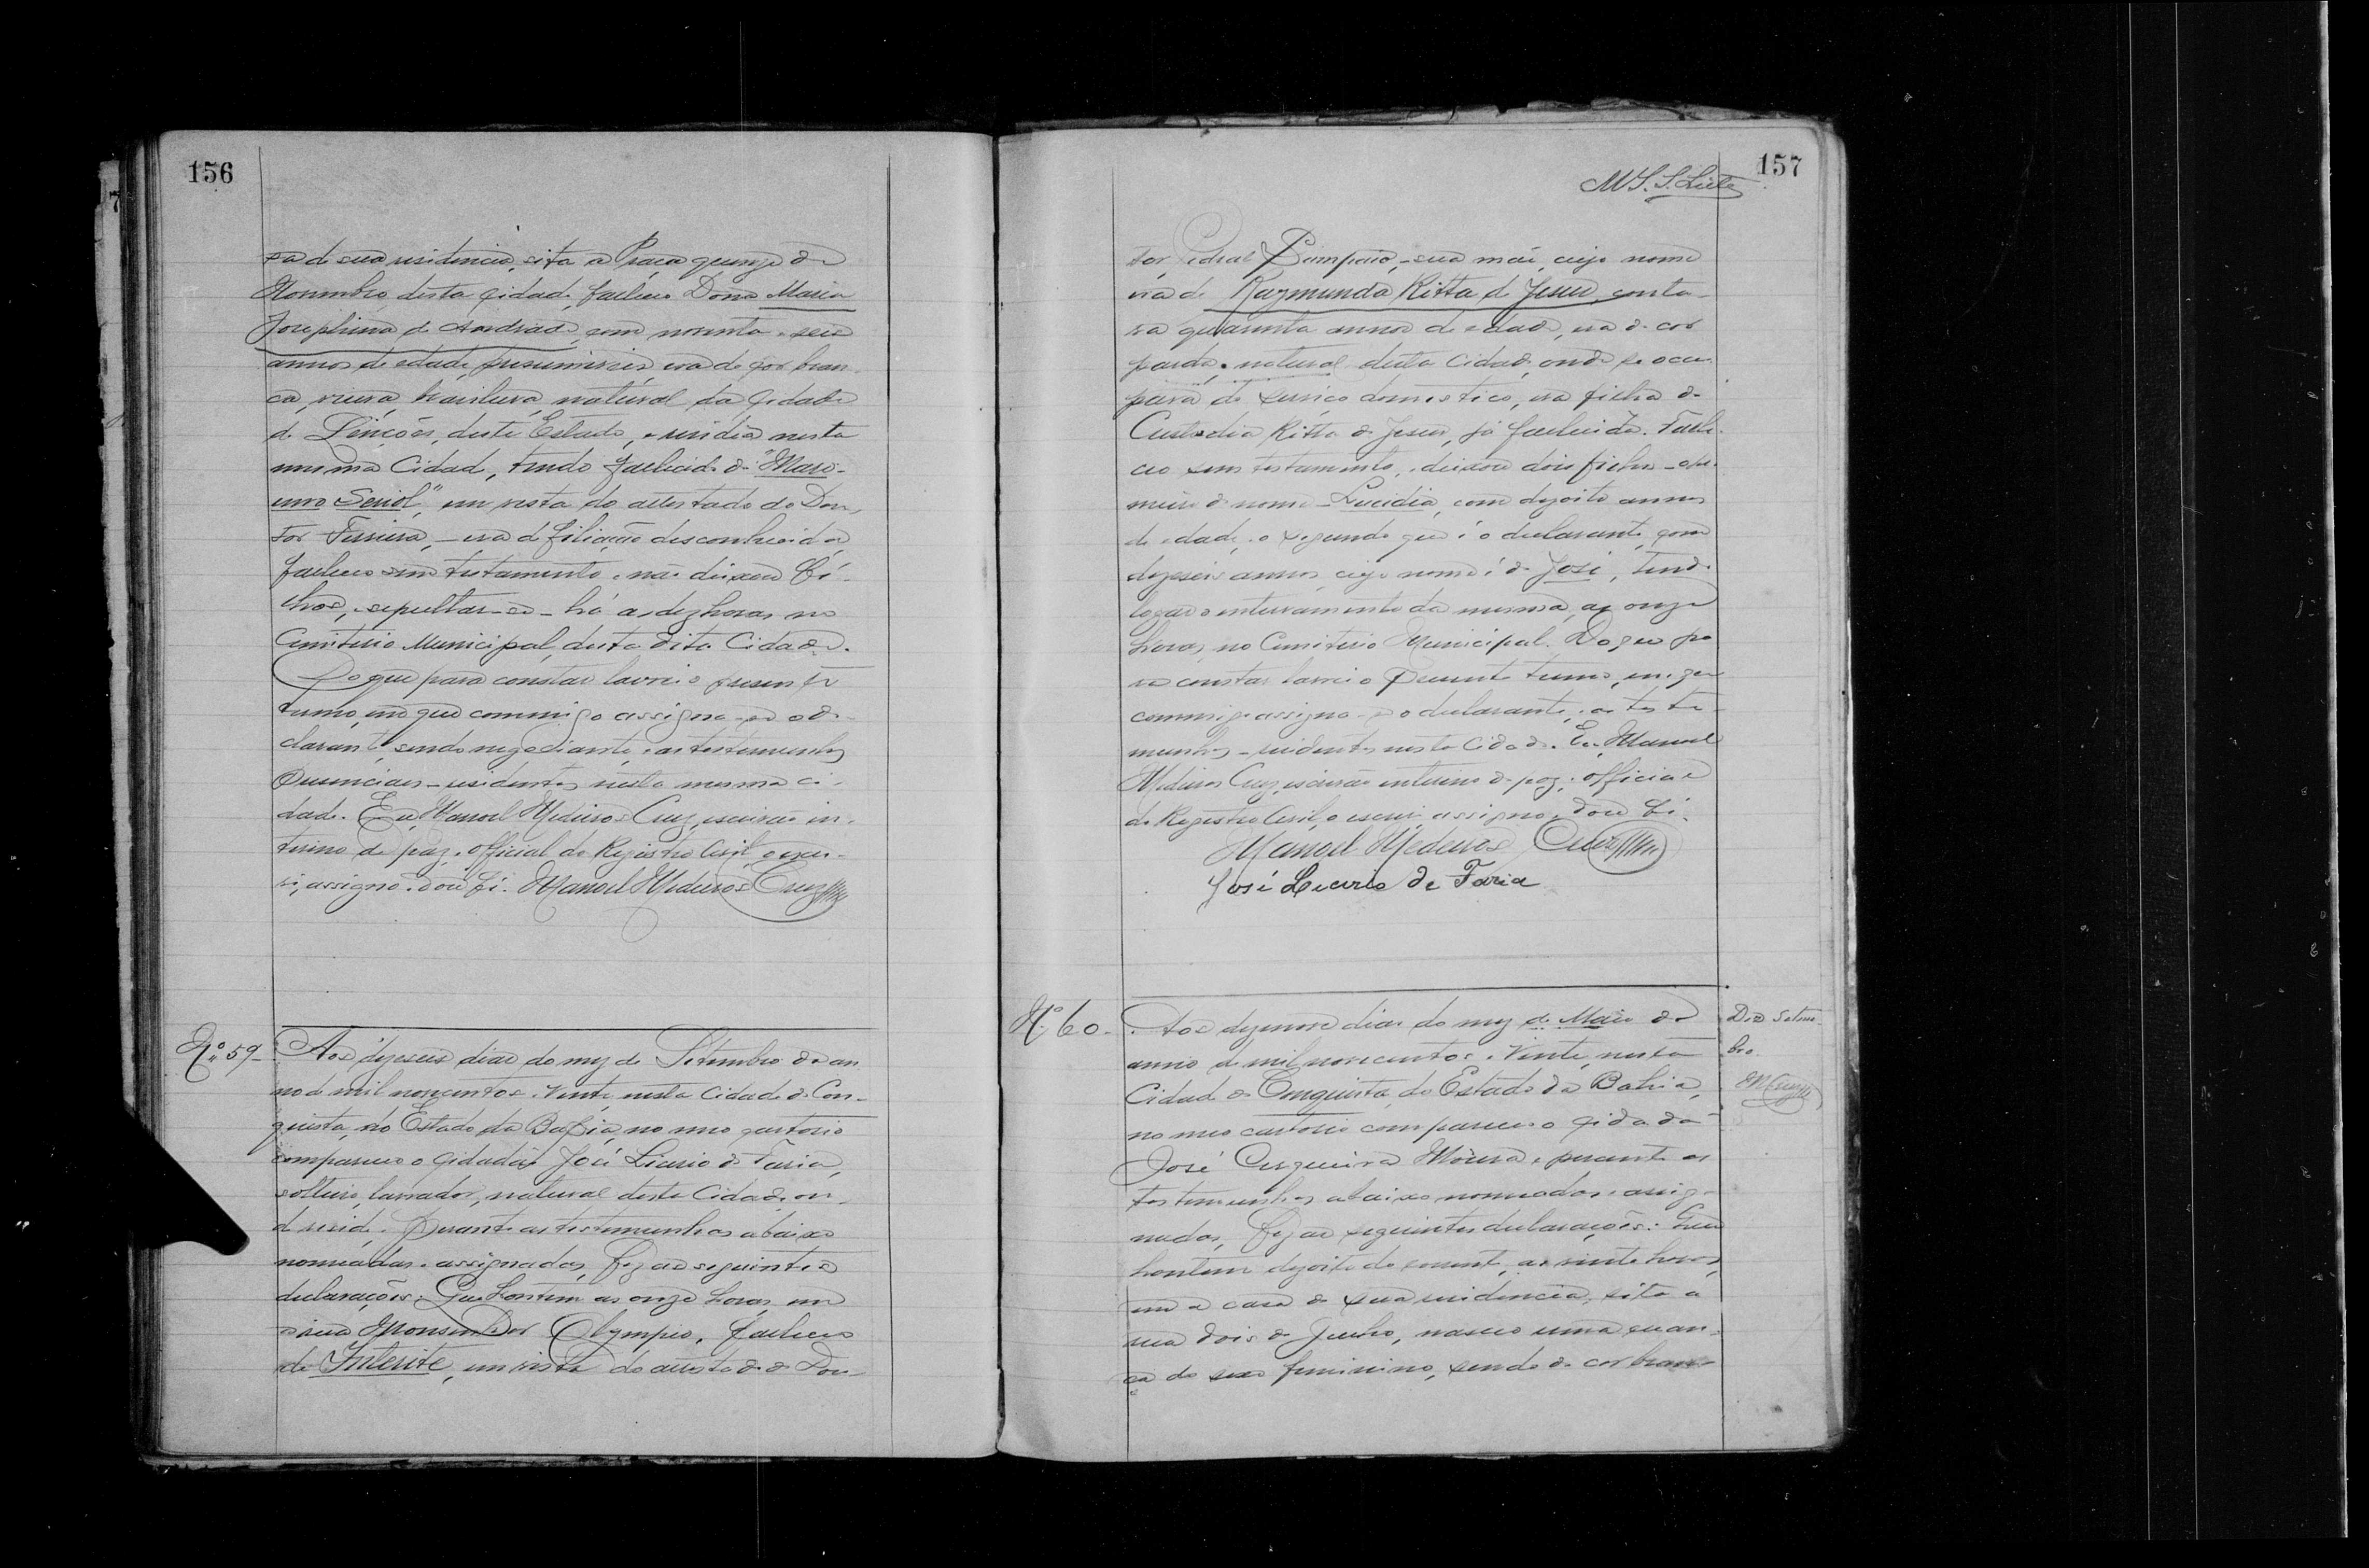 156
sa de sua residencia, sita a Praça quinze de
Novembro, desta cidade, falleceu Dona Maria
Josephina de Andrade, com noventa e seis
annos de edade, presumiveis, era de cor bran-
ca, viuva, brasileira, natural da Cidade
de Lençóes, deste Estado, e residia nesta
mesma Cidade, tendo fallecido de "Maras-
mo Senil", em vista do attestado do Dou-
tor Ferreira, - era de filiação desconhecida,
falleceu sem testamento e não deixou fi-
lhos, e sepultar-se-há as dez horas no
Cemiterio Municipal, desta dita Cidade.
Do que para constar lavrei o presente
termo, em que commigo assigna-se o de-
clarante, sendo negociante, e as testemunhas
presenciaes - residentes nesta mesma ci-
dade. Eu, Manoel Medeiros Cruz, escrivão in-
terino de paz, e official do Registro Civil, o escre-
vi, assigno e dou fé. Manoel Medeiros Cruz
Nº 59- Aos dezeseis dias do mez de Setembro do an-
no de mil novecentos e vinte, nesta Cidade de Con-
quista, do Estado da Bahia, no meo cartorio
compareceo o cidadão José Licerio de Faria,
solteiro, lavrador, natural desta Cidade, on-
de reside. Perante as testemunhas abaixo
nomeadas e assignadas, fez as seguintes
declarações: Que hontem as onze horas, em
a rua Monsenhor Olympio, falleceu
de Interite, em vista do attestado do Dou-
157
M S. S. Leite
tor Pedral Sampaio, - sua mãe, cujo nome
era de Raymunda Ritta de Jesus, conta-
va quarenta annos de edade, era de cor
parda, e natural desta Cidade, onde se occu-
pava de serviço domestico, era filha de
Custodia Ritta de Jesus, já fallecida. Falle-
ceo sem testamento, e deixou dois filhos - o pri-
meiro de nome - Lucidia, com dezoito annos
de edade, e o segundo que é o declarante, com
dezeseis annos, cujo nome é de José, tendo
logar o enterramento da mesma, as onze
horas, no Cemiterio Municipal. Do que pa-
ra constar lavrei o presente termo, em que
commigo assigna-se o declarante, e as teste-
munhas - residentes nesta Cidade. Eu, Manoel
Medeiros Cruz, escrivão interino de paz, e official
do Registro Civil, o escrevi, assigno e dou fé.
Manoel Medeiros Cruz
José Licerio de Faria
Nº 60- Aos dezenove dias do mez de Maio do
anno de mil novecentos e vinte, nesta
Cidade de Conquista, do Estado da Bahia,
no meo cartorio compareceo o cidadão
José Cerqueira Moura, e perante as
testemunhas abaixo nomeadas e assig-
nadas, fez as seguintes declarações: Que
hontem dezoito do corrente, as vinte horas,
em a casa de sua residencia, sita a
rua dois de Julho, nasceo uma crian-
ça do sexo feminino, sendo de cor bran-
Digo Setem-
bro.
M Cruz